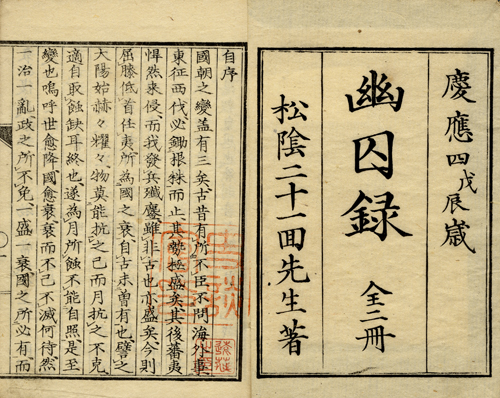 慶應四戊辰歳
幽囚録 全二冊
松陰二十一回先生著
自序
國朝之變蓋有三矣古昔有所不臣不問海外事
東征西伐必鋤根株而止其勢極盛矣其後蕃夷
悍然来侵而我發兵殲鏖雖非古也亦盛矣今則
屈膝低首任夷所為國之衰自古未曽有也譬之
太陽始赫々耀々物莫能抗之已而月抗之不克
適自取蝕缺耳終也遂為月所蝕不能自照是至
變也嗚呼世愈降國愈衰衰而不已不滅何待然
一治一亂政之所不免一盛一衰國之所必有而